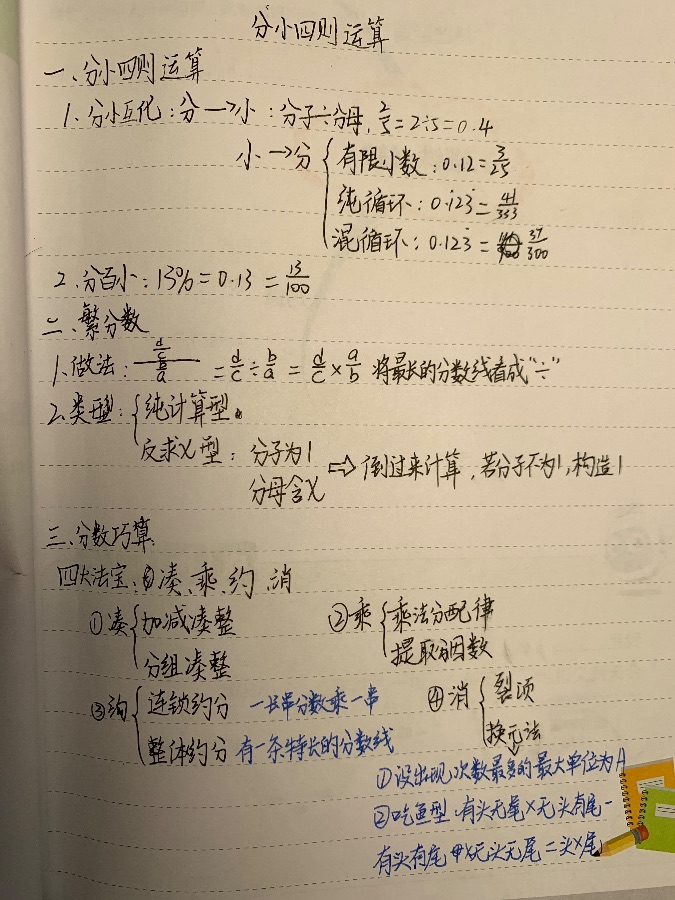 分小四则运算
一、分小四则运算
1、分小互化：分→小：分子÷分母, 2/5=2÷5=0.4
小→分 { 有限小数：0.12=3/25
纯循环：0.1̇23̇=41/333
混循环：0.123̇=37/300
2、分百小：13%=0.13=13/100
二、繁分数
1、做法：(d/c)/(b/a) =d/c÷b/a=d/c×a/b 将最长的分数线看成“÷”
2、类型：{ 纯计算型。
反求X型：分子为1
分母含X ⇒倒过来计算，若分子不为1，构造1
三、分数巧算
四大法宝、凑、乘、约、消
①凑{ 加减凑整 ②乘{ 乘法分配律
分组凑整 提取公因数
③约{ 连锁约分 一长串分数乘一串 ④消{ 裂项
整体约分 有一条特长的分数线 换元法
①设出现次数最多的最大单位为A
②吃鱼型、有头无尾×无头有尾-
有头有尾×无头无尾=头×尾